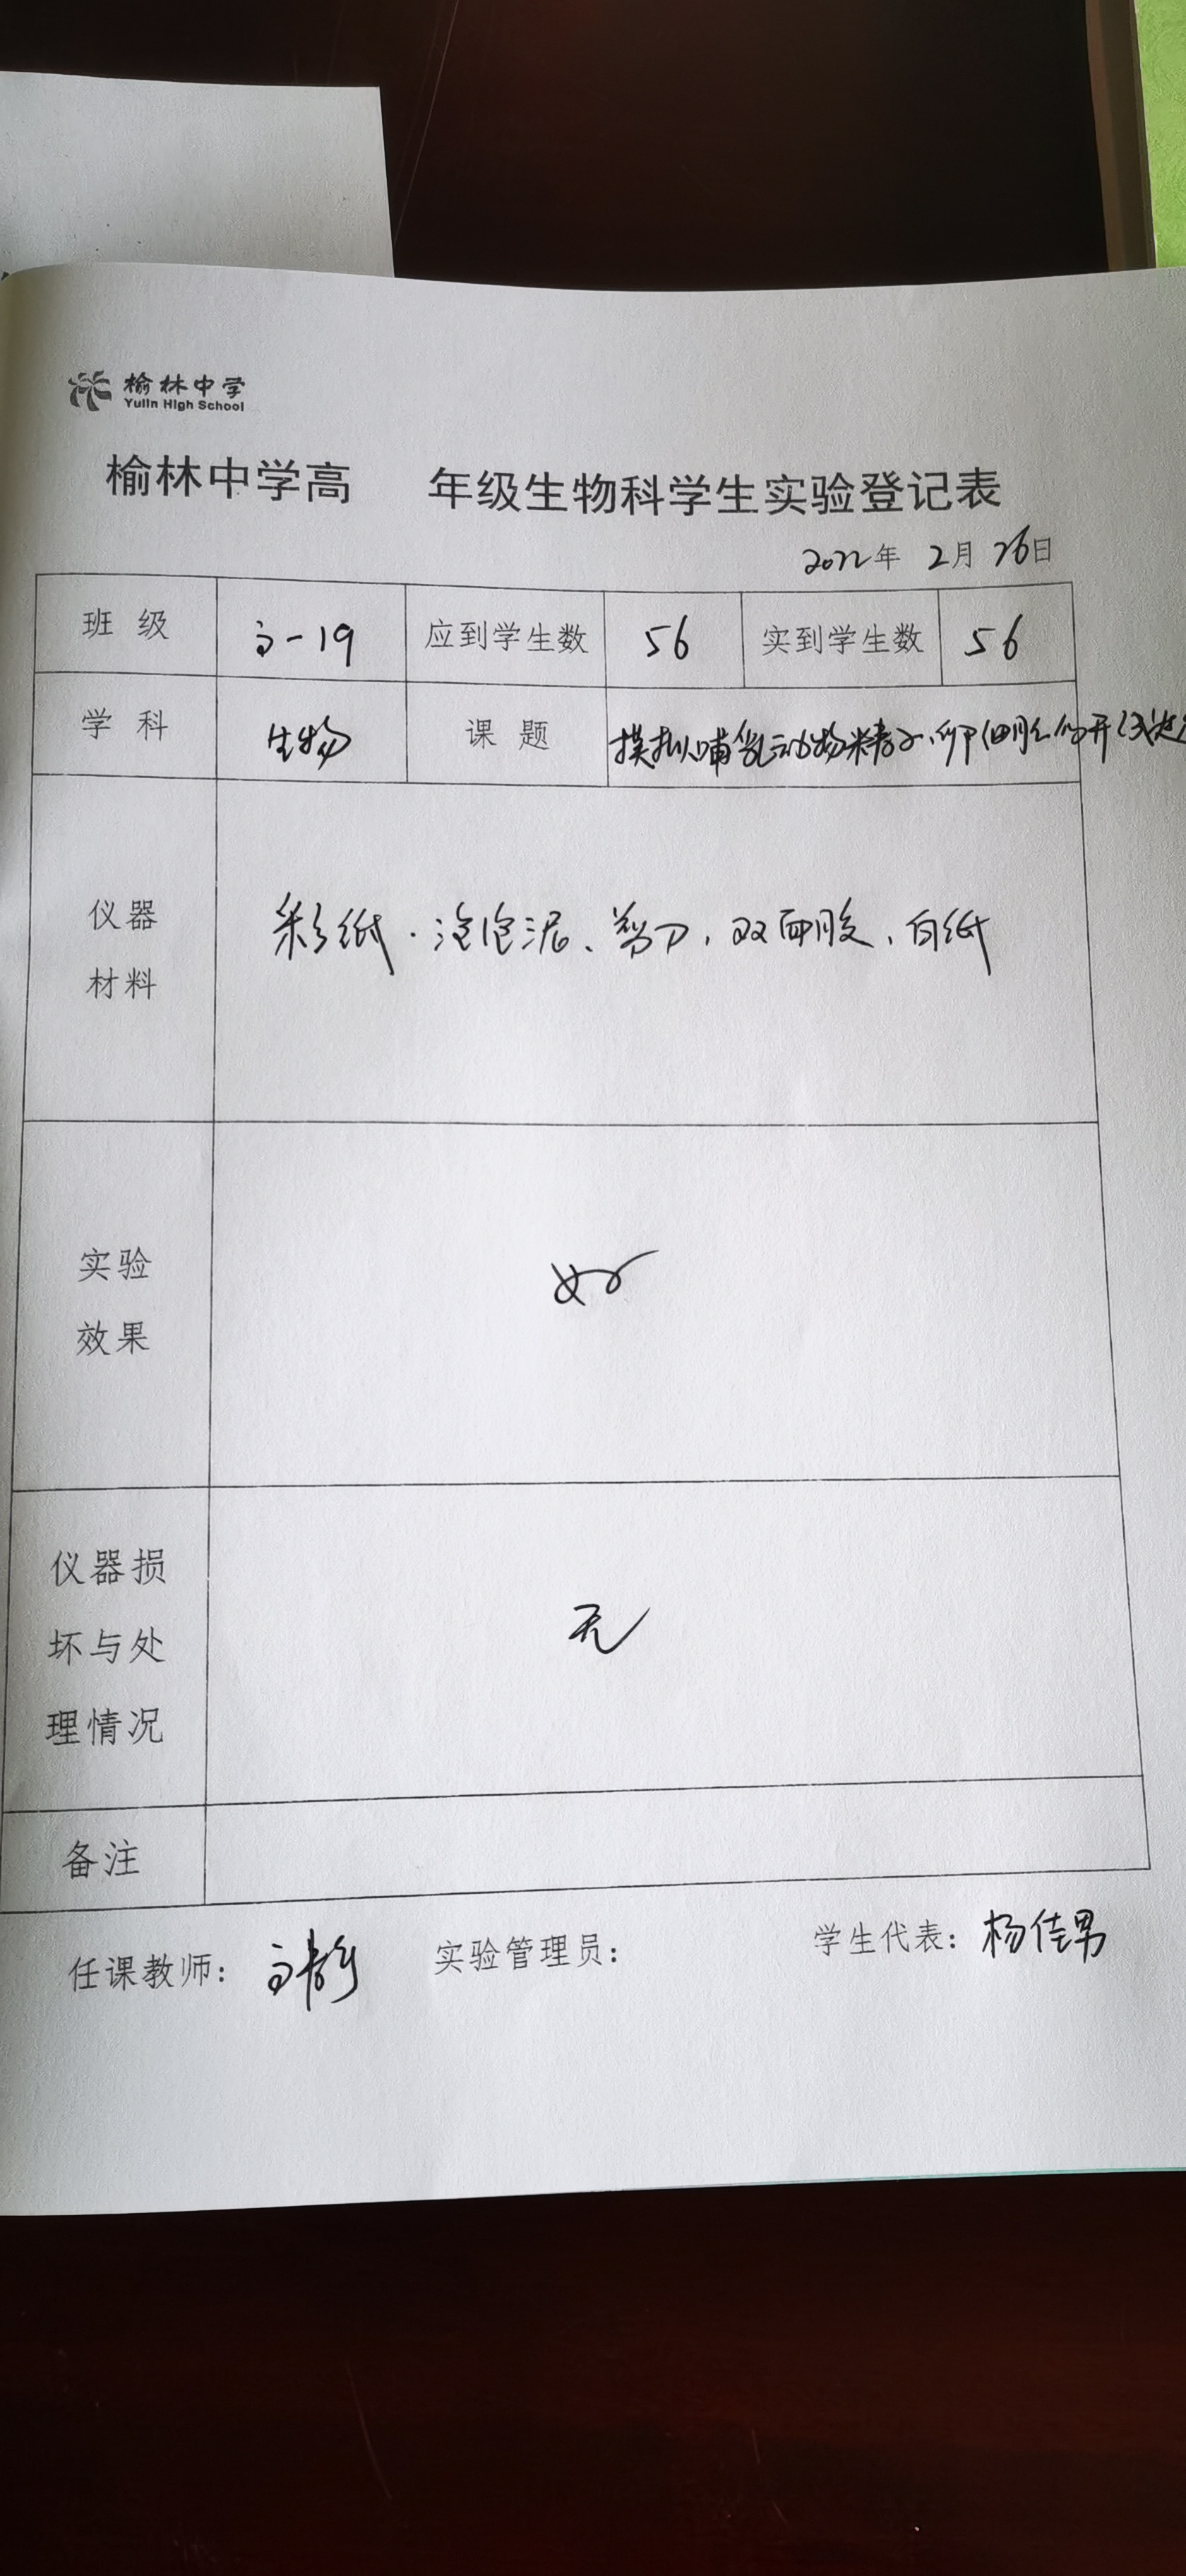 榆林中学
Yulin High School
榆林中学高 年级生物科学生实验登记表
2022年 2月 26日
班 级 高一19 应到学生数 56 实到学生数 56
学 科 生物 课 题 模拟哺乳动物精子、卵细胞的形成过
仪器
材料
彩纸、泡泡泥、剪刀、双面胶、白纸
实验
效果
好
仪器损
坏与处
理情况
无
备注
任课教师： 实验管理员： 学生代表：杨佳男